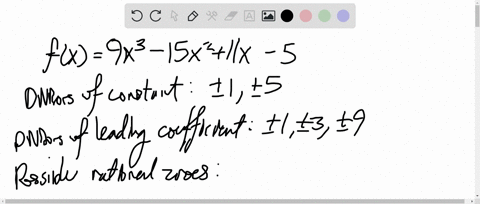 f(x) = 9x³ - 15x² + 11x - 5
Divisors of constant: ±1, ±5
Divisors of leading coefficient: ±1, ±3, ±9
Possible rational zeroes: